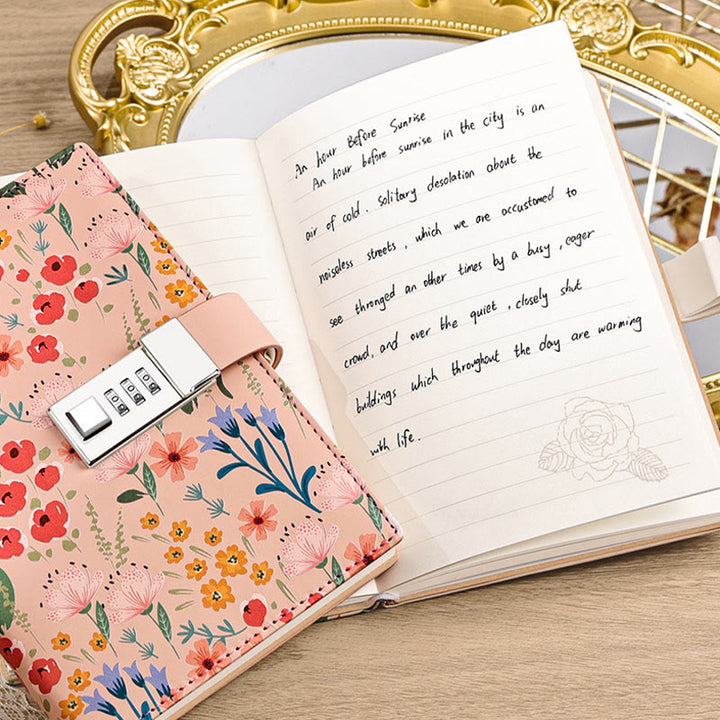 An hour Before Sunrise
An hour before sunrise in the city is an
air of cold. Solitary desolation about the
noiseless streets, which we are accustomed to
see thronged an other times by a busy, eager
crowd, and over the quiet, closely shut
buildings which throughout the day are warming
with life.